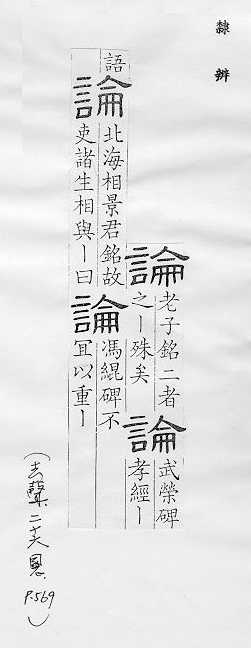 隸辨
論 老子銘二者
之丨殊矣
論 武榮碑
孝經丨
語
論 北海相景君銘故
吏諸生相與丨曰
論 馮緄碑不
冝以重丨
(去聲二十六慁 P.569)